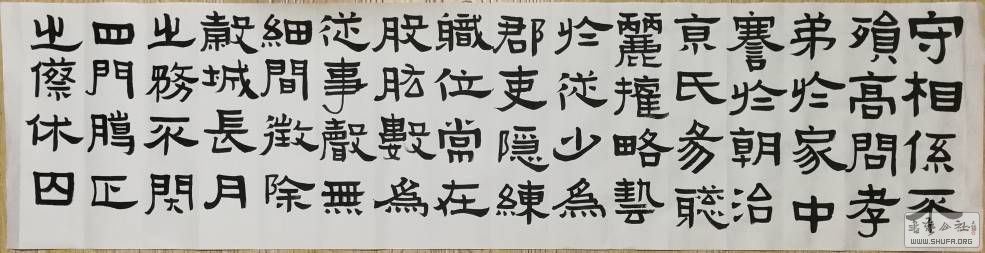 守相係不
殞高問孝
弟於家中
謇於朝治
京氏易聦
麗權略藝
於從少為
郡吏隱練
職位常在
股肱數為
從事聲無
細間徵除
穀城長月
之務不閉
四門臈正
之傺休囚
WWW.SHUFA.ORG